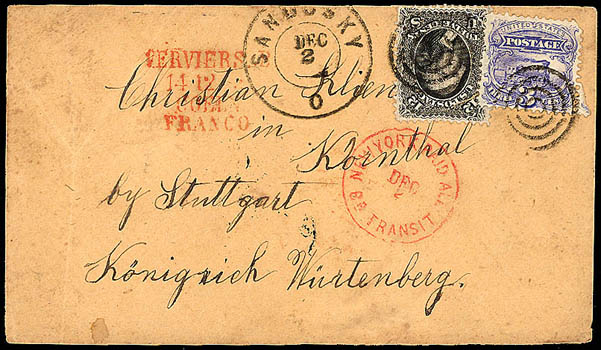 SANDUSKY
DEC
2
O
UNITED STATES
POSTAGE
VERVIERS
14 12
COELN
FRANCO
Christian Klien
in
Kornthal
by Stuttgart
Königreich Würtenberg.
NEW YORK PAID ALL
DEC
2
TRANSIT